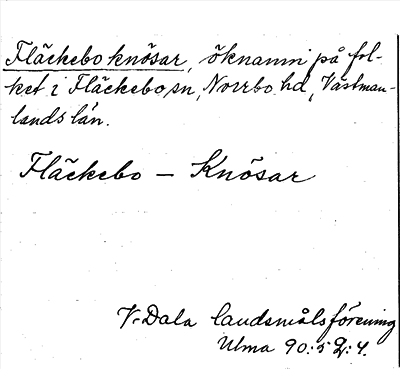 Fläckebo knösar, öknamn på fol-
ket i Fläckebo sn, Norrbo hd, Västman-
lands län.
Fläckebo – Knösar
V-Dala landsmålsförening
Ulma 90:52:4.